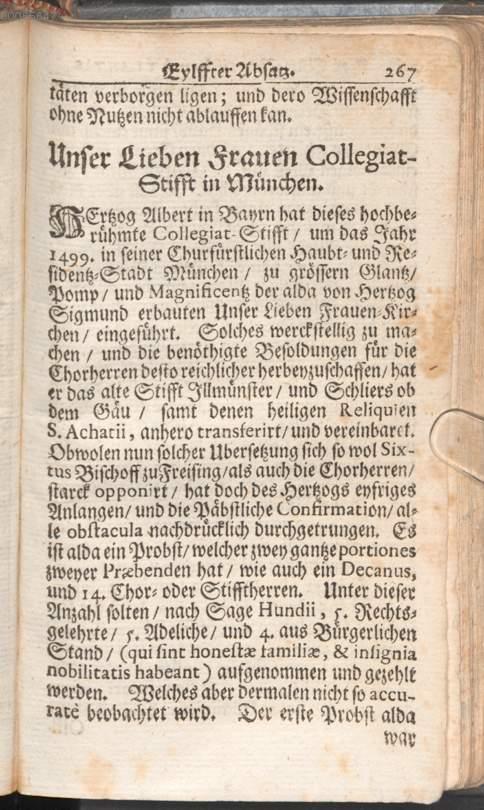 Eylffter Absatz. 267
täten verborgen ligen; und dero Wissenschafft
ohne Nutzen nicht ablauffen kan.
Unser Lieben Frauen Collegiat-
Stifft in München.
HErtzog Albert in Bayrn hat dieses hochbe-
rühmte Collegiat-Stifft / um das Jahr
1499. in seiner Churfürstlichen Haubt- und Re-
sidentz-Stadt München / zu grössern Glantz/
Pomp / und Magnificentz der alda von Hertzog
Sigmund erbauten Unser Lieben Frauen-Kir-
chen / eingeführt. Solches werckstellig zu ma-
chen / und die benöthigte Besoldungen für die
Chorherren desto reichlicher herbeyzuschaffen / hat
er das alte Stifft Illmünster / und Schliers ob
dem Gäu / samt denen heiligen Reliquien
S. Achatii, anhero transferirt / und vereinbaret.
Obwolen nun solcher Ubersetzung sich so wol Six-
tus Bischoff zu Freising / als auch die Chorherren /
starck opponirt / hat doch des Hertzogs eyfriges
Anlangen / und die Päbstliche Confirmation / al-
le obstacula nachdrücklich durchgetrungen. Es
ist alda ein Probst / welcher zwey gantze portiones
zweyer Præbenden hat / wie auch ein Decanus,
und 14. Chor- oder Stifftherren. Unter dieser
Anzahl solten / nach Sage Hundii, 5. Rechts-
gelehrte / 5. Adeliche / und 4. aus Bürgerlichen
Stand / (qui sint honestæ familiæ, & insignia
nobilitatis habeant) aufgenommen und gezehlt
werden. Welches aber dermalen nicht so accu-
ratè beobachtet wird. Der erste Probst alda
war